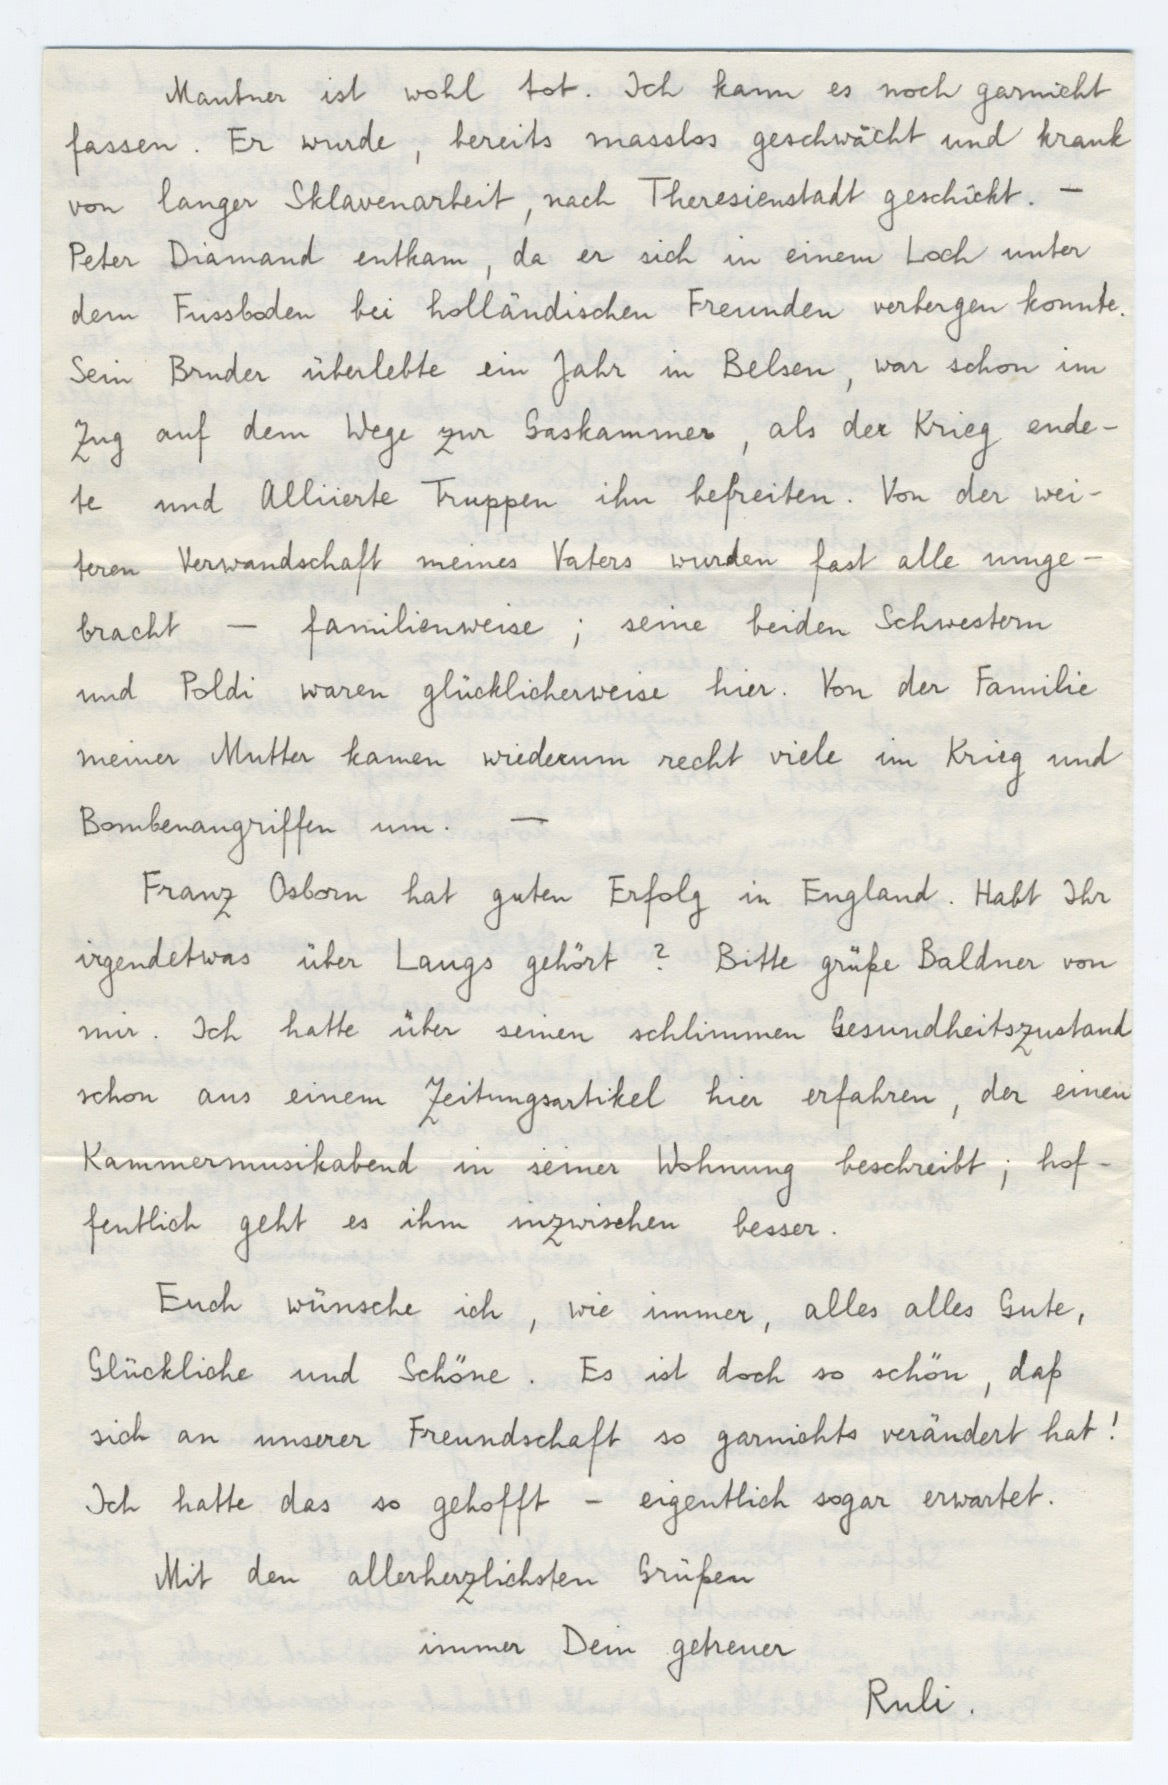 Mautner ist wohl tot. Ich kann es noch garnicht
fassen. Er wurde, bereits masslos geschwächt und krank
von langer Sklavenarbeit, nach Theresienstadt geschickt. —
Peter Diamand entkam, da er sich in einem Loch unter
dem Fussboden bei holländischen Freunden verbergen konnte.
Sein Bruder überlebte ein Jahr in Belsen, war schon im
Zug auf dem Wege zur Gaskammer, als der Krieg ende-
te und Alliierte Truppen ihn befreiten. Von der wei-
teren Verwandschaft meines Vaters wurden fast alle umge-
bracht — familienweise; seine beiden Schwestern
und Poldi waren glücklicherweise hier. Von der Familie
meiner Mutter kamen wiederum recht viele im Krieg und
Bombenangriffen um. —
Franz Osborn hat guten Erfolg in England. Habt Ihr
irgendetwas über Langs gehört? Bitte grüße Baldner von
mir. Ich hatte über seinen schlimmen Gesundheitszustand
schon aus einem Zeitungsartikel hier erfahren, der einen
Kammermusikabend in seiner Wohnung beschreibt; hof-
fentlich geht es ihm inzwischen besser.
Euch wünsche ich, wie immer, alles alles Gute,
Glückliche und Schöne. Es ist doch so schön, daß
sich an unserer Freundschaft so garnichts verändert hat!
Ich hatte das so gehofft – eigentlich sogar erwartet.
Mit den allerherzlichsten Grüßen
immer Dein getreuer
Ruli.